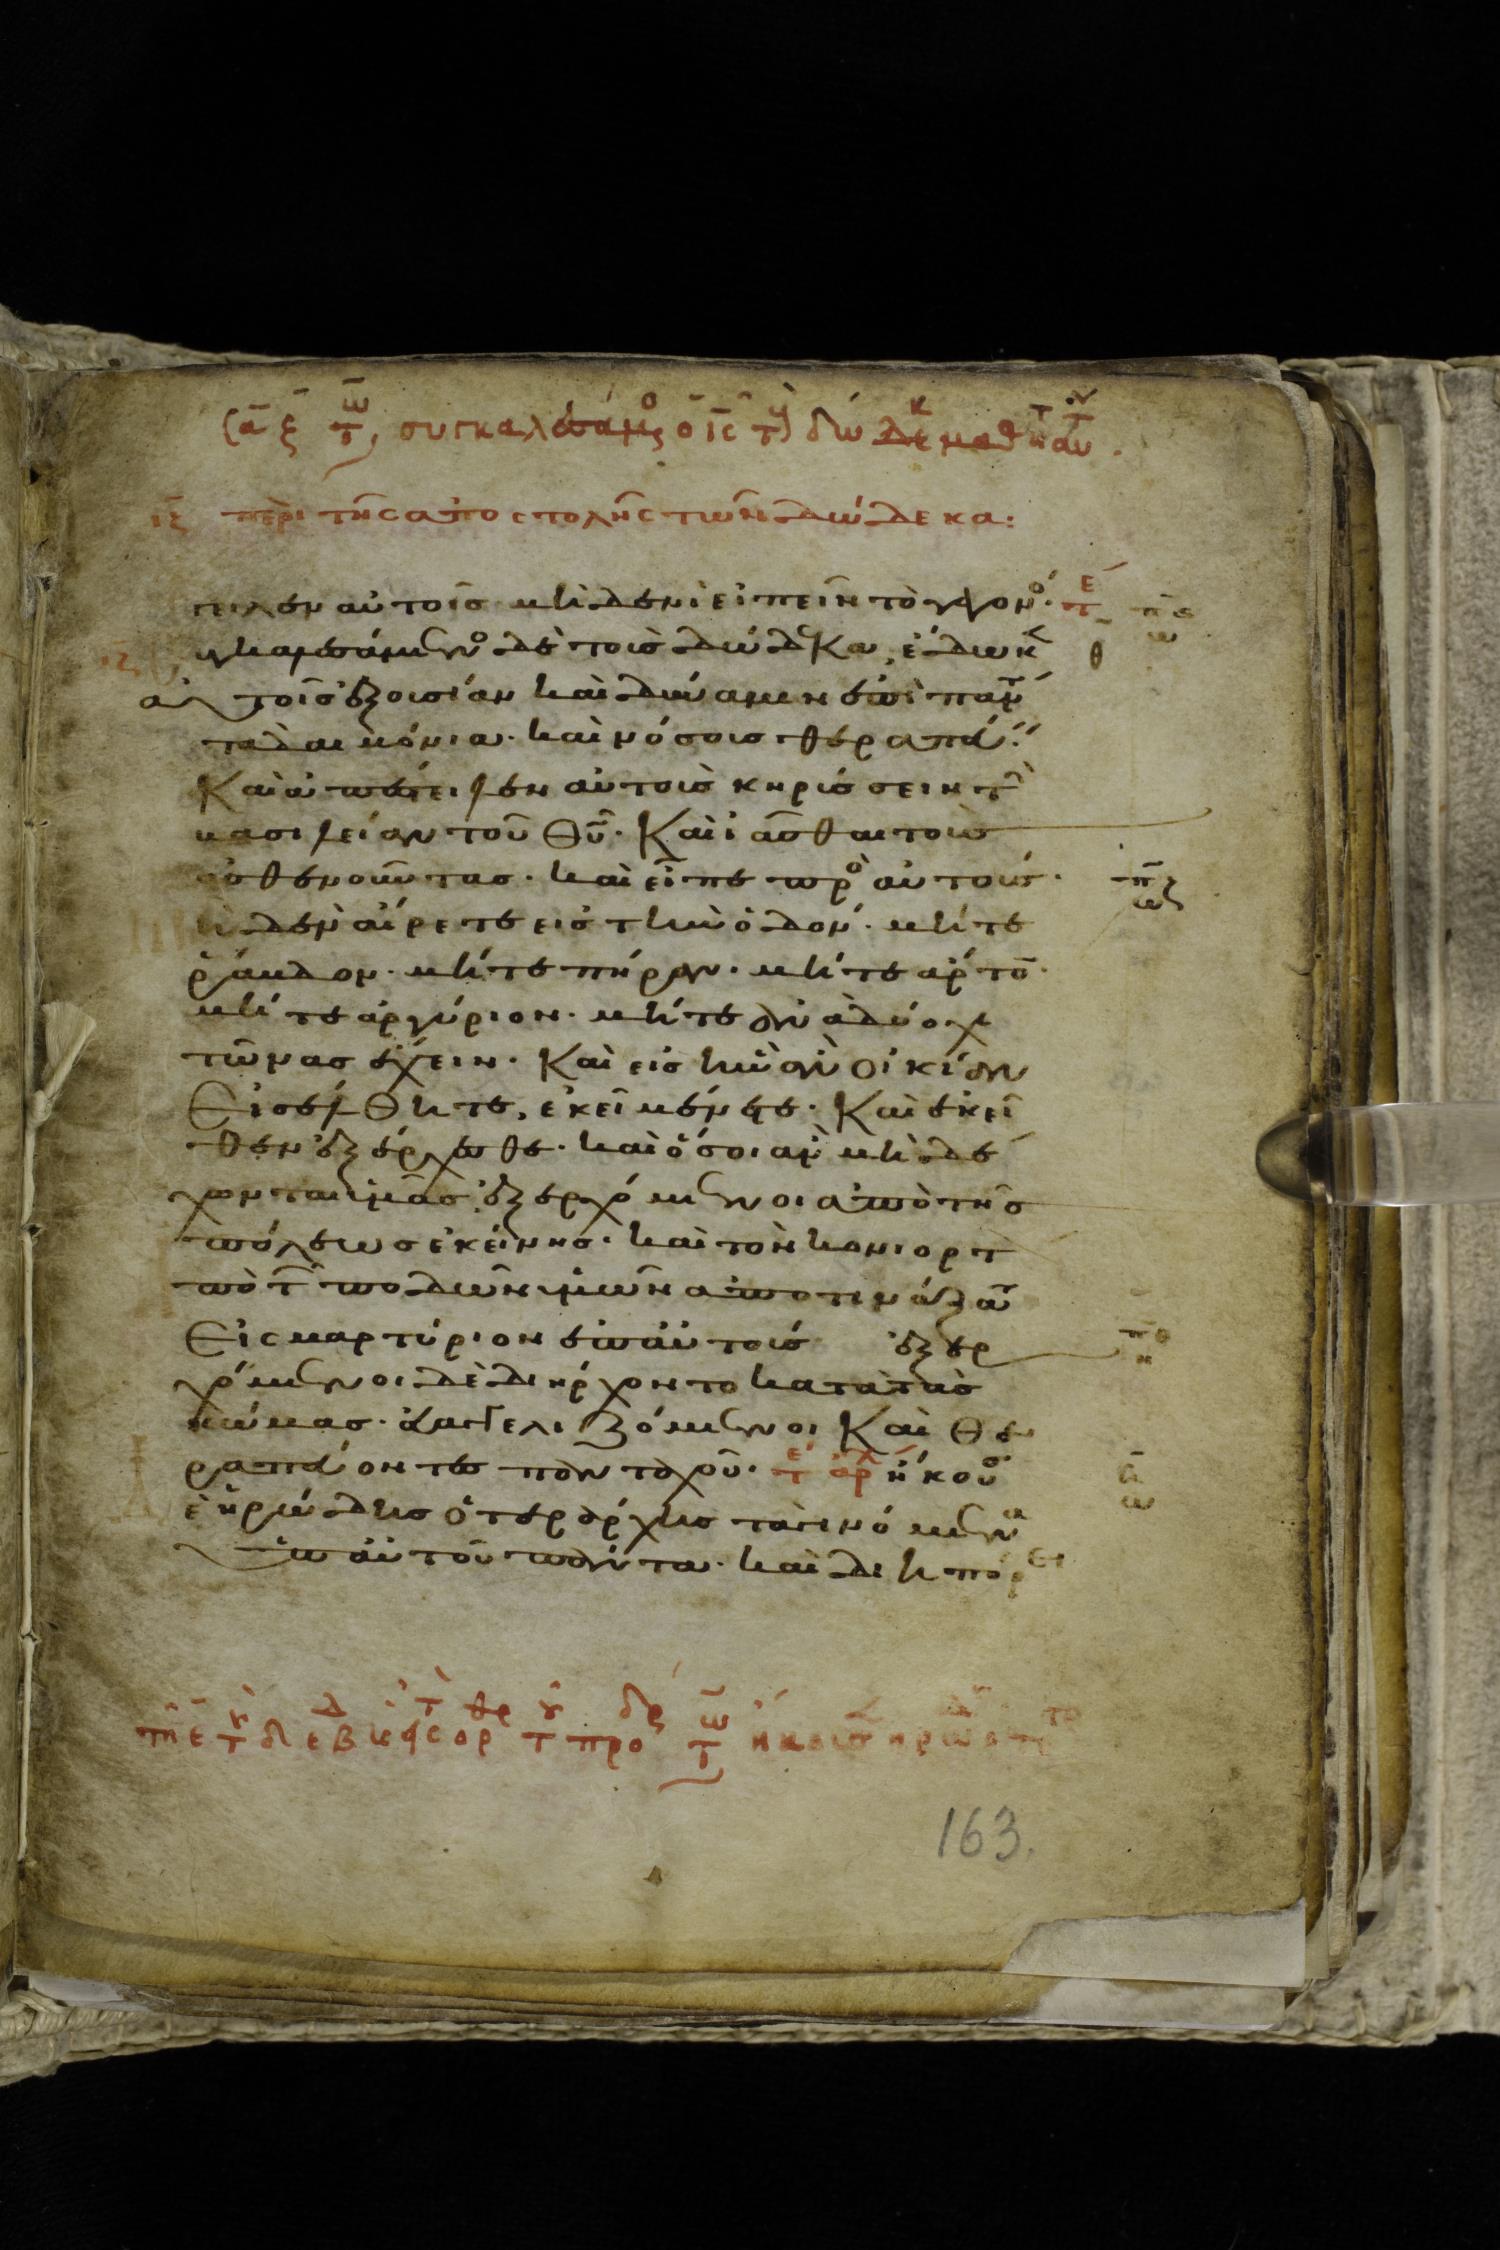 συγκαλεσάμος ὁ ις τ δώδεκ μαθητ αυ.
ιζ περὶ τῆς ἀποστολῆς τῶν δώδεκα:
γειλεν αὐτοῖς μηδενὶ εἰπεῖν τὸ γεγονό· τε
γκαλεσάμενος δὲ τοὺς δώδεκα, ἔδωκε
αὐτοῖς ἐξουσίαν καὶ δύναμιν ἐπὶ πάν
τα δαιμόνια· καὶ νόσους θεραπεύ
καὶ ἀπέστειλεν αὐτοὺς κηρύσσειν τὴ
βασιλείαν τοῦ θυ· καὶ ἰᾶσθαι τοὺς
ἀσθενοῦντας· καὶ εἶπε πρὸ αὐτούς·
μηδὲν αἴρετε εἰς τὴν ὁδόν· μήτε
ῥάβδον· μήτε πήραν· μήτε ἄρτο·
μήτε ἀργύριον· μήτε ἀνὰ δύο χι
τῶνας ἔχειν· καὶ εἰς ἣν ἂν οἰκίαν
εἰσέλθητε, ἐκεῖ μένετε· καὶ ἐκεῖ
θεν ἐξέρχεσθε· καὶ ὅσοι ἂν μὴ δέ
χωνται ὑμᾶς, ἐξερχόμενοι ἀπὸ τῆς
πόλεως ἐκείνης· καὶ τὸν κονιορτ
πὸ τ ποδῶν ὑμῶν ἀποτινάξατ
εἰς μαρτύριον ἐπ αὐτούς ἐξερ
χόμενοι δὲ διήρχοντο κατὰ τὰς
κώμας· εὐαγγελιζόμενοι καὶ θε
ραπεύοντες πανταχοῦ· τε αρχ ἤκουσ
ἡρώδης ὁ τετράρχης τὰ γινόμενα
ὑπ αὐτοῦ πάντα· καὶ διηπόρει
163.